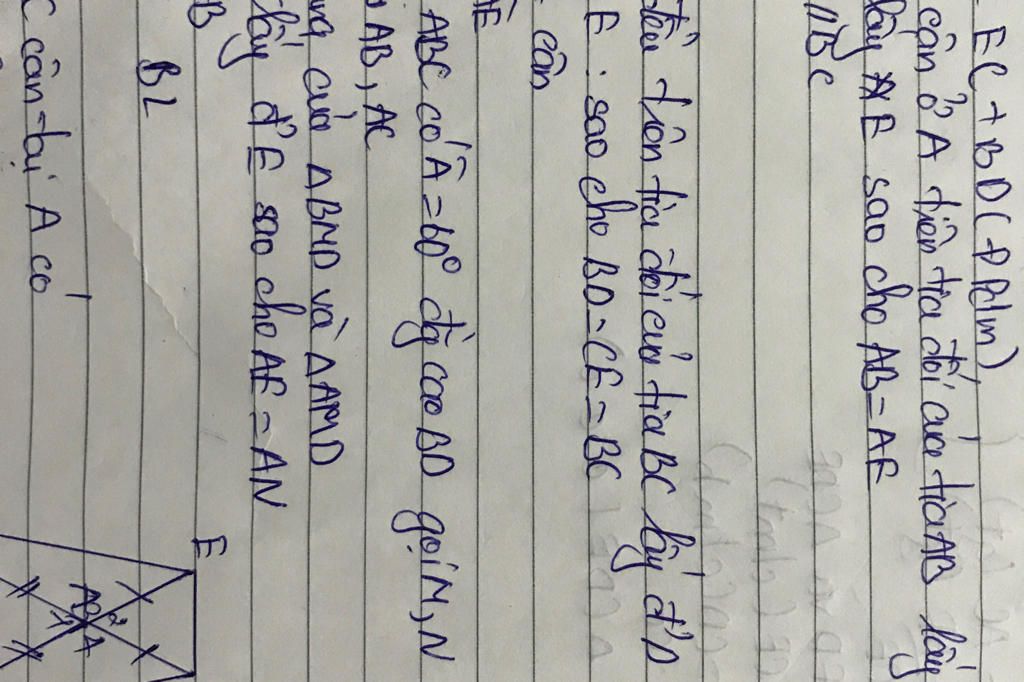 EC + BD (đpcm)
cân ở A trên tia đối của tia AB lấy
lấy E sao cho AB = AE
// BC
đều trên tia đối của tia BC lấy đ' D
E sao cho BD = CE = BC
cân
AE
ABC có Â = 60° đg cao BD gọi M, N
AB, AC
ng của ΔBMD và ΔAMD
lấy đ' E sao cho AE = AN
B
BL
C cân tại A có
E
A
2
1
A